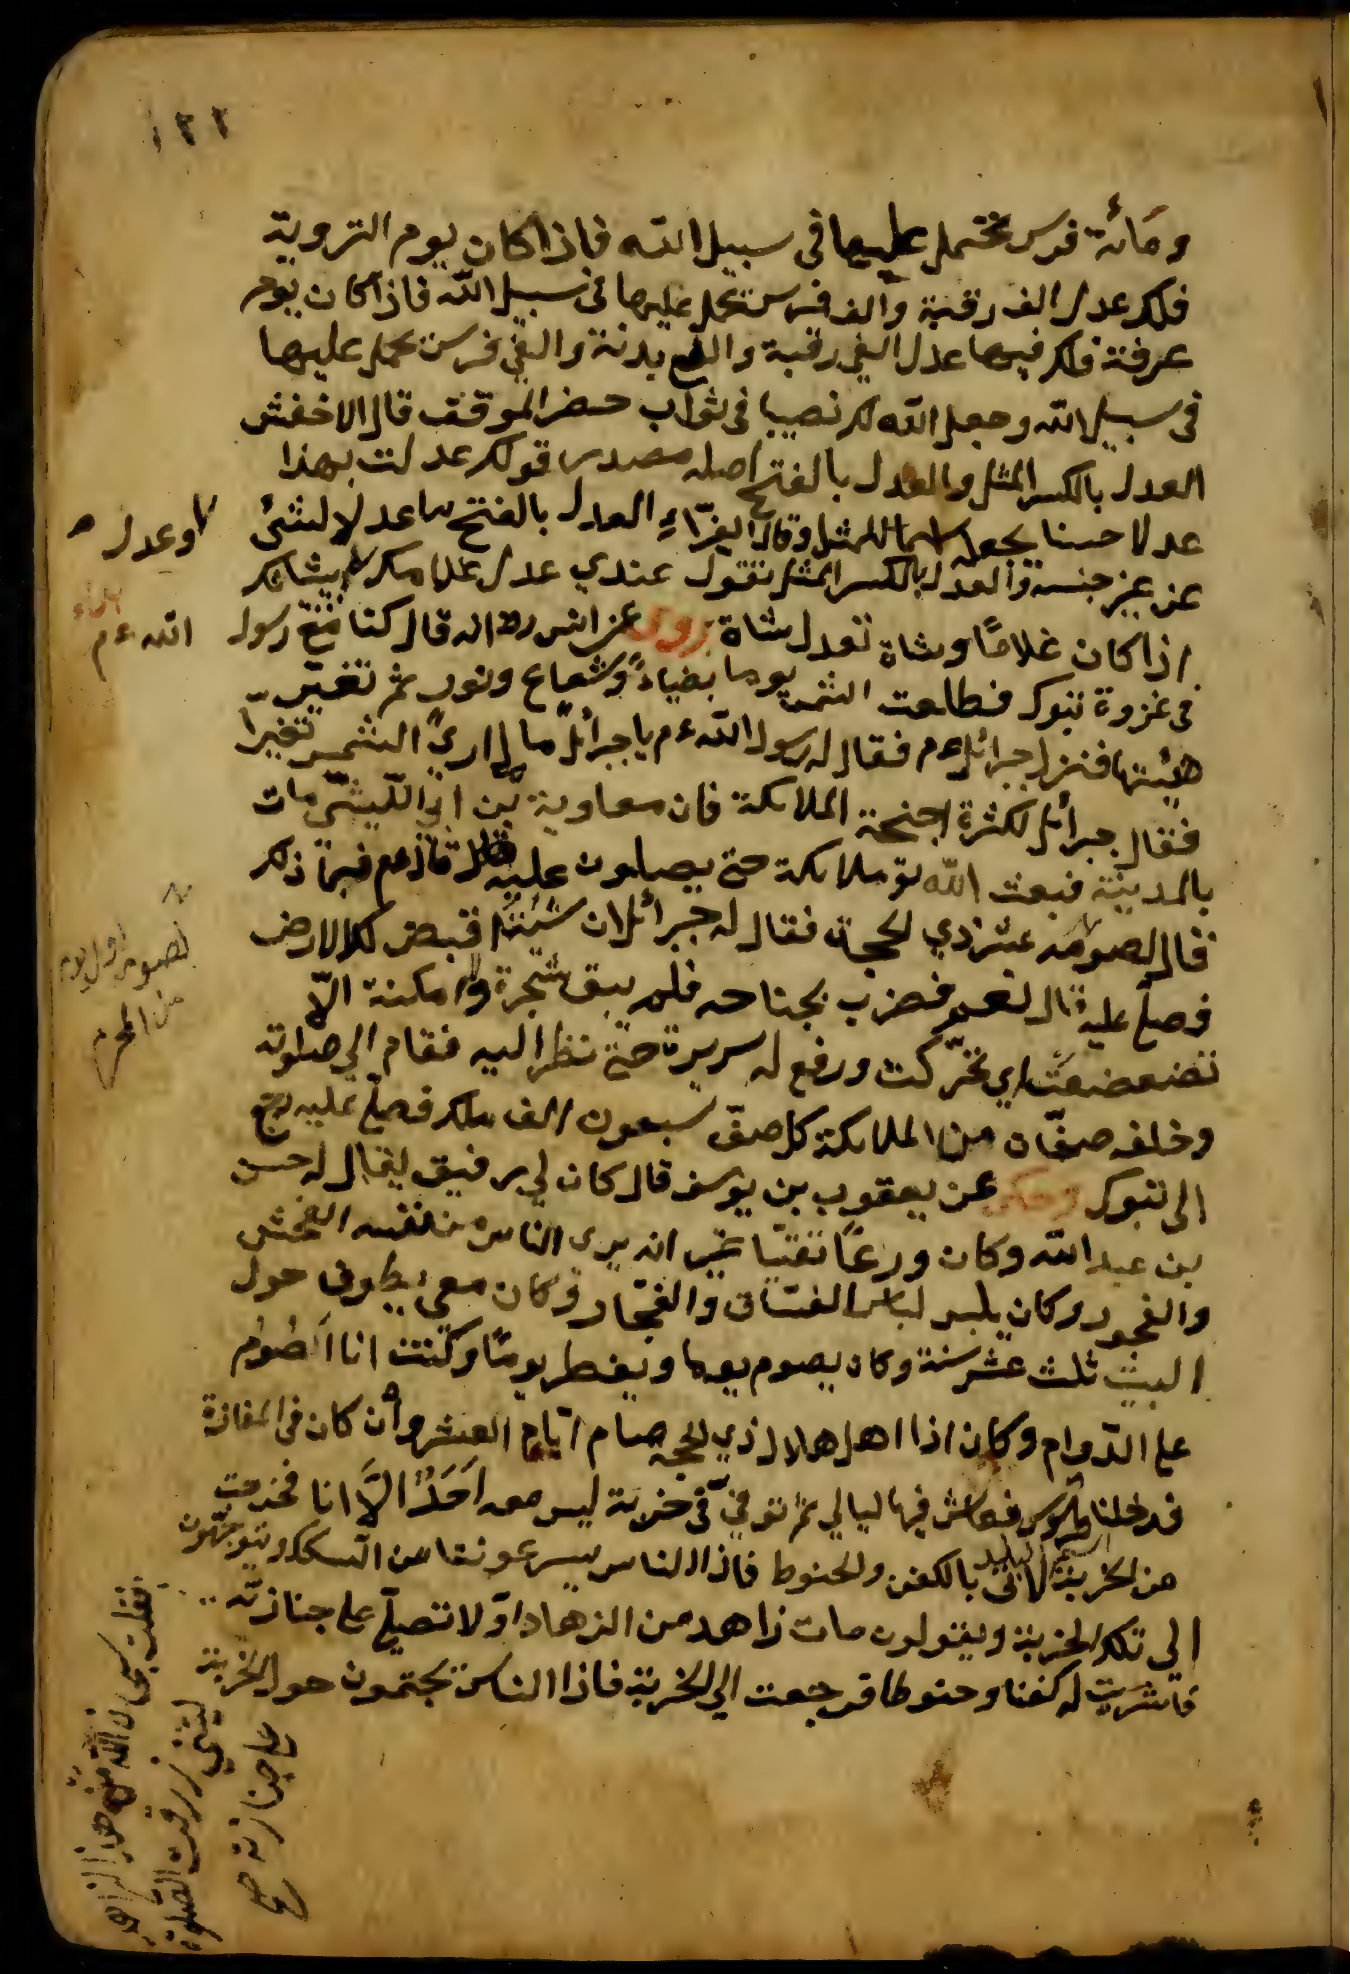 ١٢٢
ومائة فرس يحتمل عليها فى سبيل الله فاذا كان يوم التروية
فلك عدل الف رقبة والف فرس تحمل عليها فى سبيل الله فاذا كان يوم
عرفة فلك فيها عدل الفى رقبة والفى بدنة والفى فرس تحمل عليها
فى سبيل الله وجعل الله لك نصيبا فى ثواب حضر الموقف قال الاخفش
العدل بالكسر المثل والعدل بالفتح اصله مصدر قولك عدلت بهذا
عدلا حسنا يجعل اسما للمثل وقال الفرّاء العدل بالفتح ما عدل الشئ
وعدل
عن غير جنسه والعدل بالكسر المثل تقول عندي عدل غلامك وعدل شاتك
اذا كان غلامًا وشاة تعدل شاة روى عن انس رض انه قال كنا مع رسول الله ءم
فى غزوة تبوك فطلعت الشمس يوما بضياءً وشعاع ونور ثم تغيّر
هيئتها فنزل جبرائل ءم فقال له رسول الله ءم يا جبرائل ما لي ارى الشمس تغيرا
فقال جبرائل لكثرة اجنحة الملائكة فان معاوية بن ابي الليثى مات
بالمدينة فبعث الله تع ملائكة حتى يصلون عليه قال فبم ذلك
فقال لصومه عشر ذي الحجة فقال له جبرائل ان شئت اقبض لك الارض
لصومه اول الايام
من المحرم
فصلّ عليه قال نعم فضرب بجناحه فلم يبق شجرة ولا مكنة الّا
تضعضعت اي تحرّكت ورفع له سريره حتى نظر اليه فقام الى صلوته
وخلفه صفّان من الملائكة كل صفّ سبعون الف ملك فصلّى عليه ورجع
الى تبوك وحكى عن يعقوب بن يوسف قال كان لي رفيق يقال له حسن
بن عبد الله وكان ورعًا تقيّا غير انه يرى الناس من نفسه الفحش
والفجور وكان يلبس لباس الفسّاق والفجّار وكان معي يطوف حول
البيت ثلث عشر سنة وكان يصوم يوما ويفطر يومًا وكنت انا اصوم
على الدّوام وكان اذا اهل هلال ذي الحجة صام ايّام العشر وان كان فى المفازة
فدخلنا طرسوس فعاش فيها ليالي ثم توفيّ فى خربة ليس معه احَدٌ الّا انا فخرجت
من الخربة لاتى بالكفن والحنوط فاذا الناس يسرعون من السكك ويتوجّهون
الى تلك الخربة ويقولون مات زاهد من الزهاد اولا تصلّى على جنازته
فاشتريت له كفنا وحنوطا فرجعت الى الخربة فاذا الناس يجتمعون حول الخربة
فقلت سبحان الله من هذا الزاهد
ليتنى رزقت الصلوة
على جنازته صح